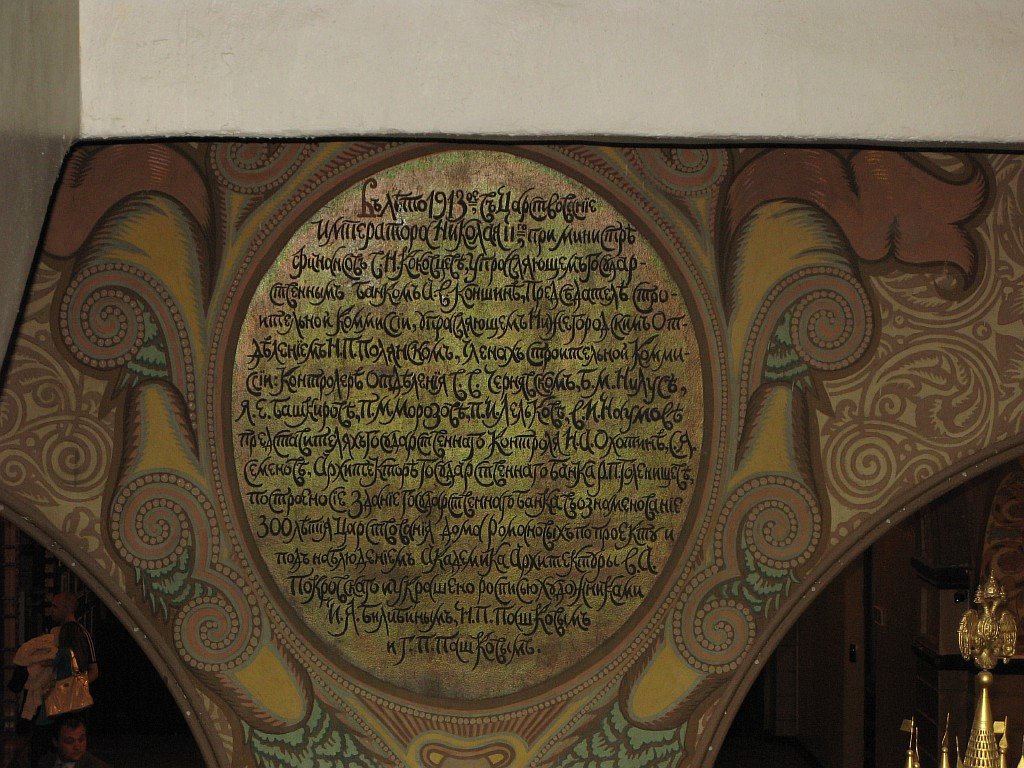 Въ лѣто 1913ое въ Царствованіе
Императора Николая IIго при министрѣ
Финансовъ В.Н. Коковцевѣ, Управляющемъ Государ-
ственнымъ Банкомъ А.В. Коншинѣ, Предсѣдателѣ Стро-
ительной Коммиссіи, Управляющемъ Нижегородскимъ От-
дѣленіемъ Н.П. Полянскомъ, Членахъ Строительной Комми-
ссіи: Контролерѣ Отдѣленія С.С. Чернявскомъ, Б.М. Нилусѣ,
Я.Е. Башкировѣ, П.М. Морозовѣ, П.И. Лельковѣ, В.И. Наумовѣ
представителяхъ Государственнаго Контроля Н.А. Охотинѣ,
Семеновѣ, Архитекторѣ Государственнаго Банка Р.П. Голенищевѣ,
построено сіе Зданіе Государственнаго Банка въ ознаменованіе
300 лѣтія Царствованія Дома Романовыхъ по проекту и
подъ наблюденіемъ Академика Архитектуры В.А.
Покровскаго и украшено росписью Художниками
И.Я. Билибинымъ, Н.П. Пашковымъ
и Г.П. Пашковымъ.